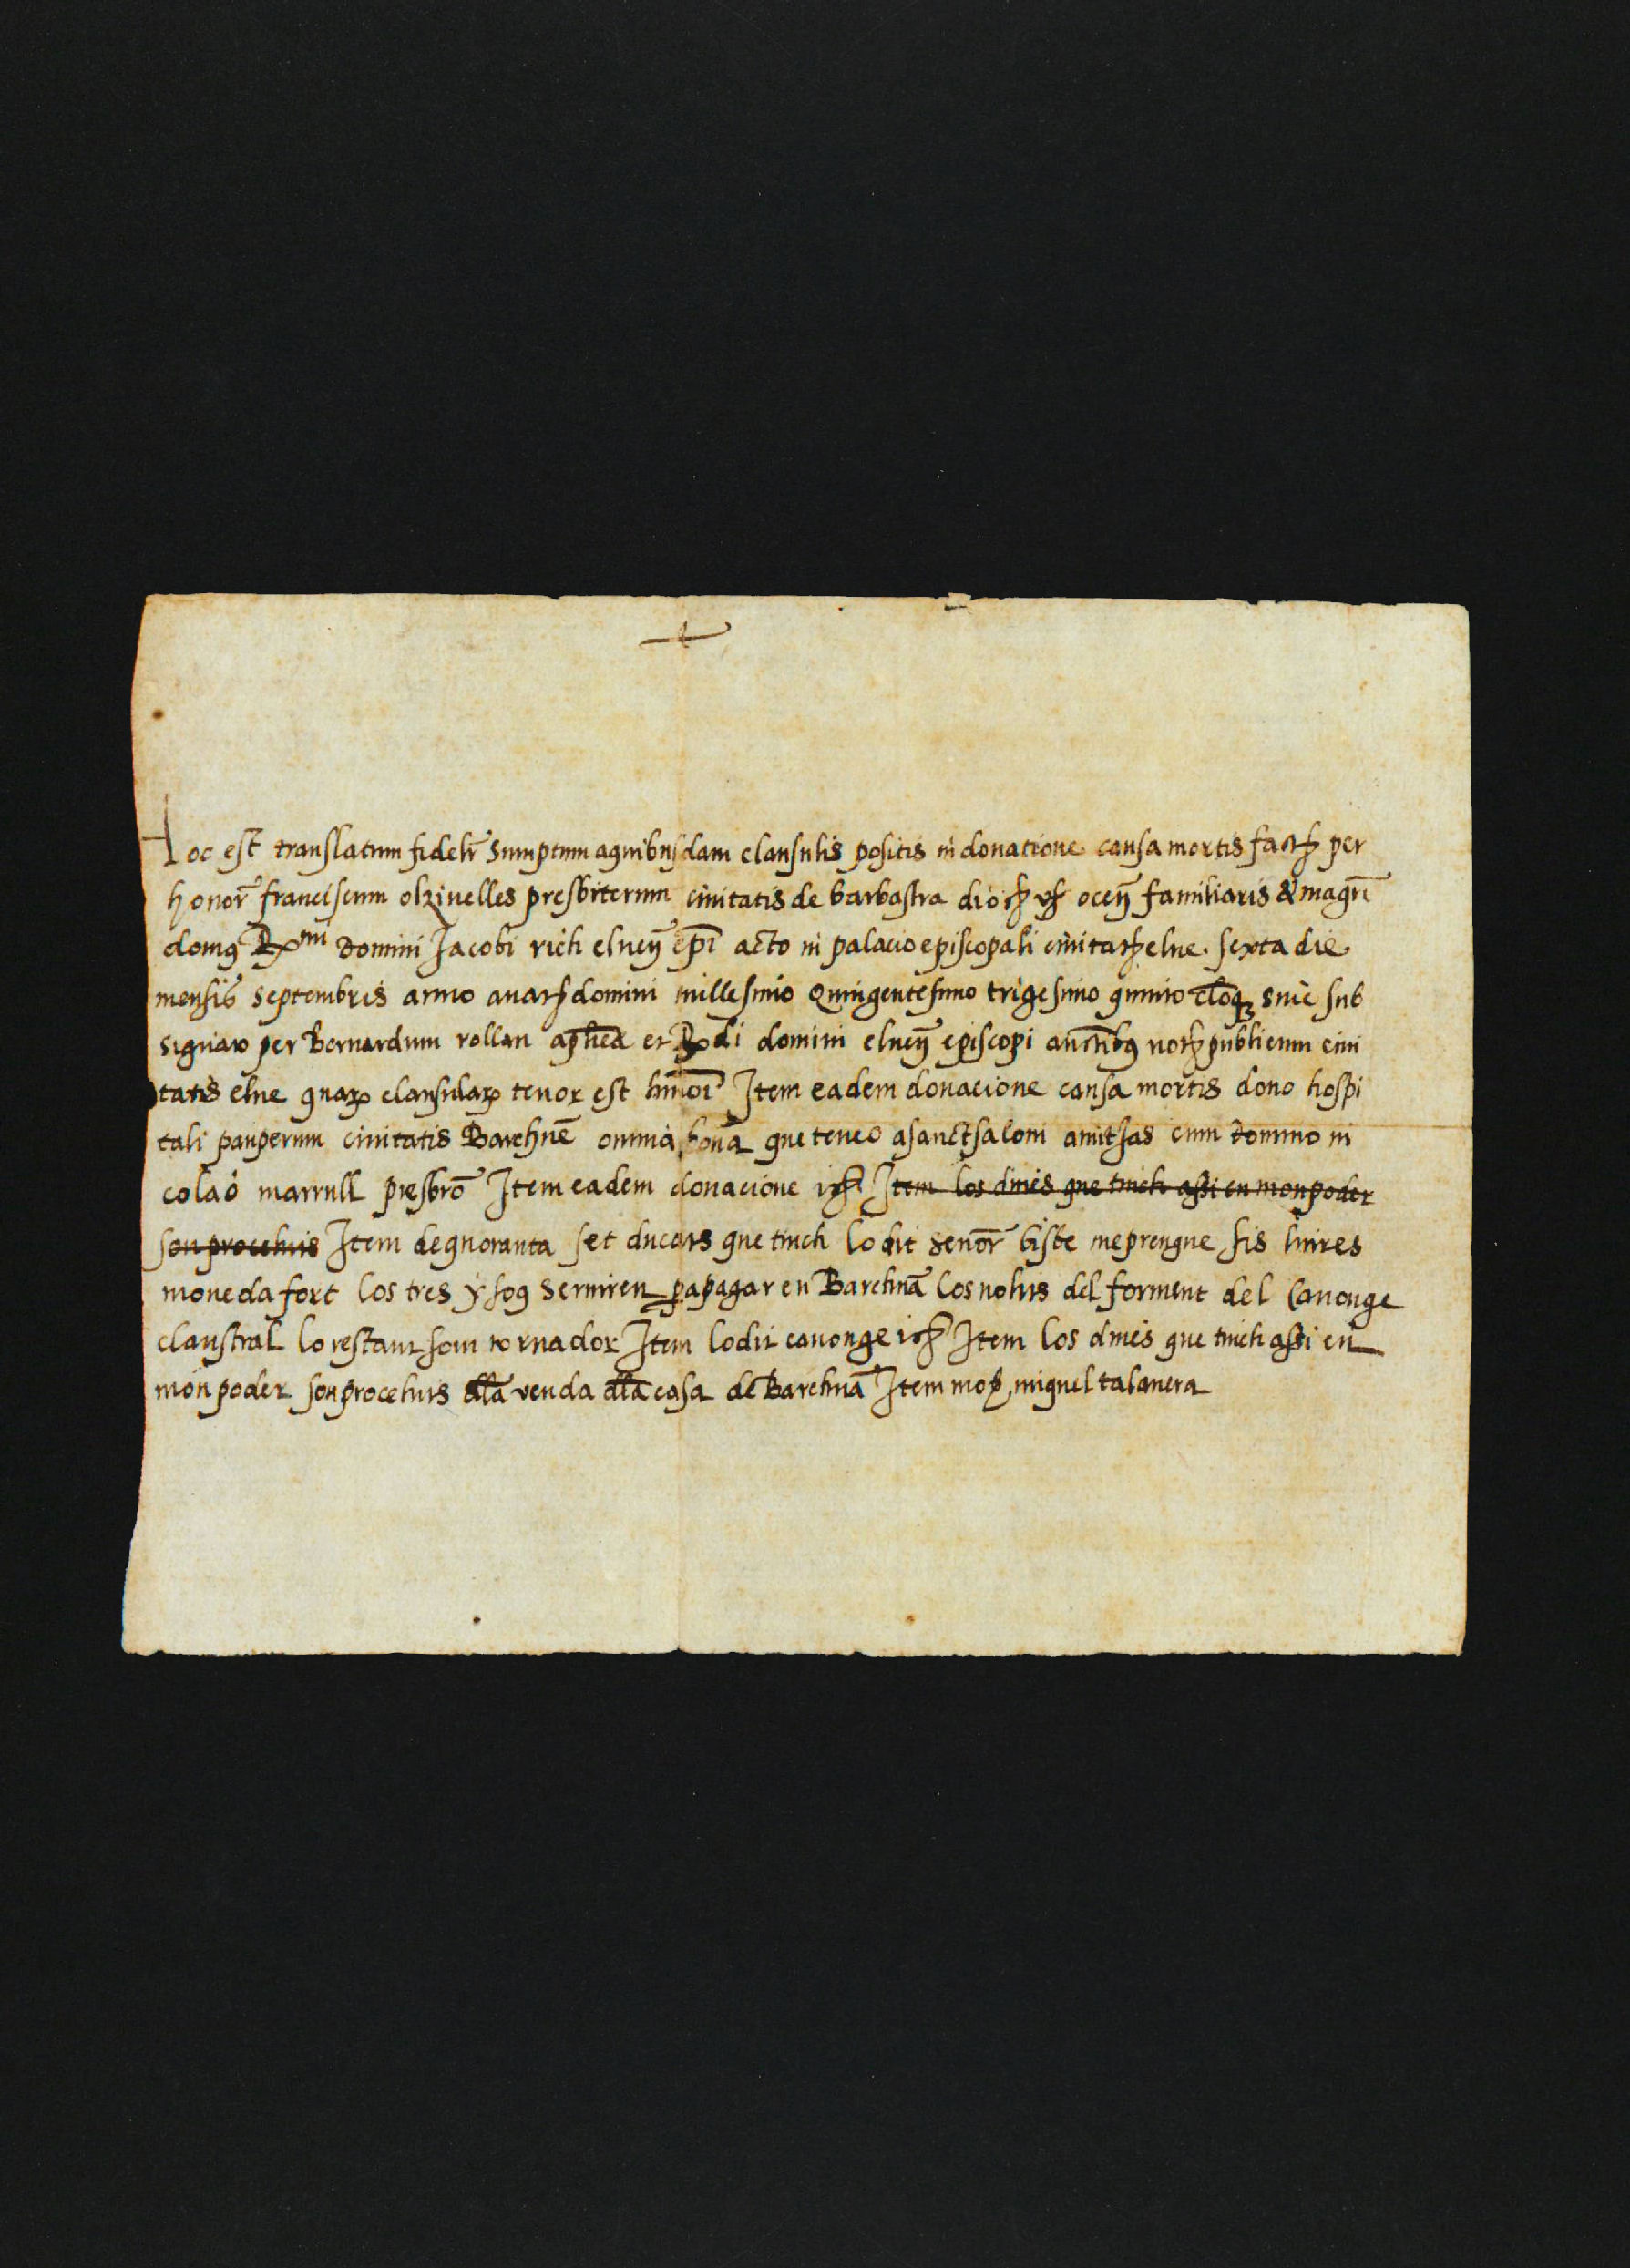 Hoc est translatum fidelr̄ sumptum a quibusdam clausulis positis in donatione causa mortis fact per
honor̄ franciscum olzinelles presbiterum civitatis de barbastra dioc oceñ familiaris & magr̄i
domus Rxmi domini Jacobi rich elneñ ep̄i acto in palacio episcopali civitat elne. sexta die
mensis septembris anno a nat domini millesimo Quingentesimo trigesimo quinto cloq̨ sive sub
signato per Bernardum rollan aplica et Rdi domini elneñ episcopi auctbus not publicum civi
tatis elne quarx clausularx tenor est hmōi Item eadem donacione causa mortis dono hospi
tali pauperum civitatis Barchnē omnia bona que teneo a sanct saloni amitjas cum domino ni
colao marrull presbrō Item eadem donacione Item los dines que tinch assi en mon poder
son procehits Item de quoranta set ducats que tinch lo dit senor̄ bisbe me prengue sis liures
moneda fort los tres y sous serviren per a pagar en Barchnā los nolits del forment del Canonge
claustral lo restant som tornador Item lo dit canonge Item los dines que tinch assi en
mon poder son procehits dla venda dla casa de Barchnā Item mo miquel talavera